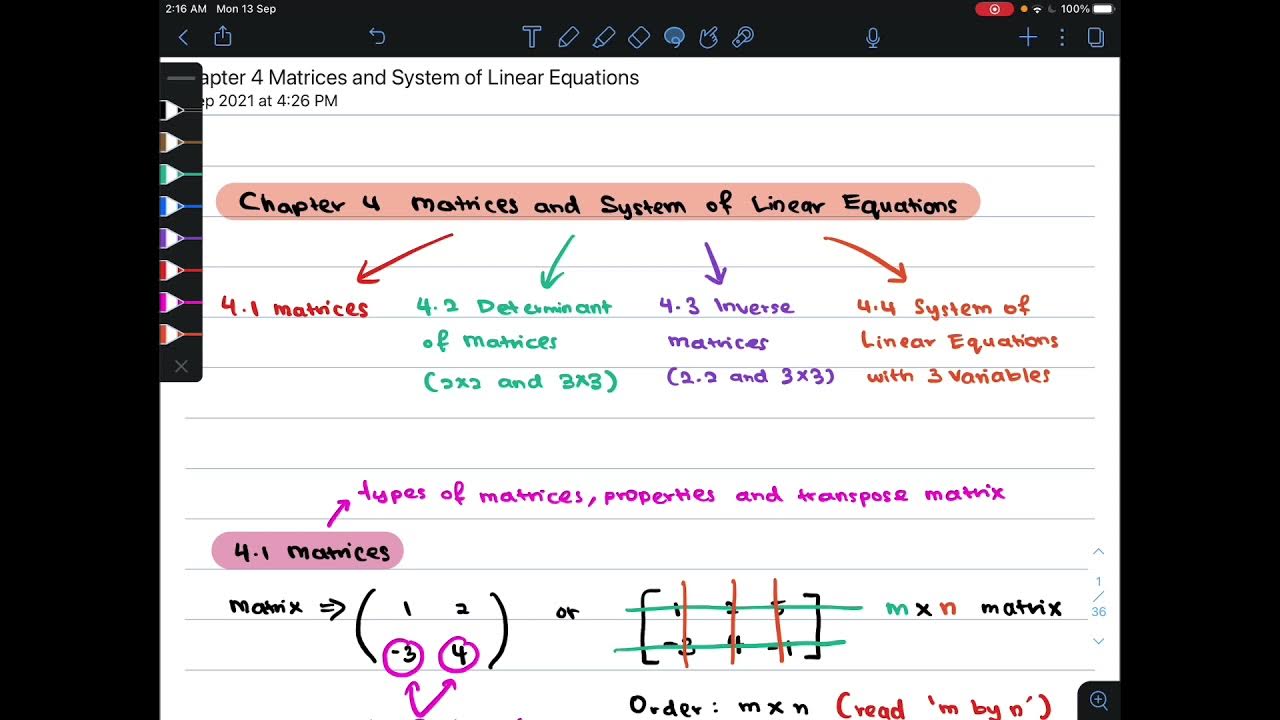 2:16 AM Mon 13 Sep
100%
apter 4 Matrices and System of Linear Equations
ep 2021 at 4:26 PM
Chapter 4 Matrices and System of Linear Equations
4.1 Matrices
4.2 Determinant
of Matrices
(2x2 and 3x3)
4.3 Inverse
matrices
(2.2 and 3x3)
4.4 System of
Linear Equations
with 3 Variables
types of matrices, properties and transpose matrix
4.1 Matrices
Matrix ⇒ ( 1 2 or [ 1 2 5 m x n matrix
-3 4 ) -3 4 -1 ]
Order: m x n (read 'm by n')
1
/
36